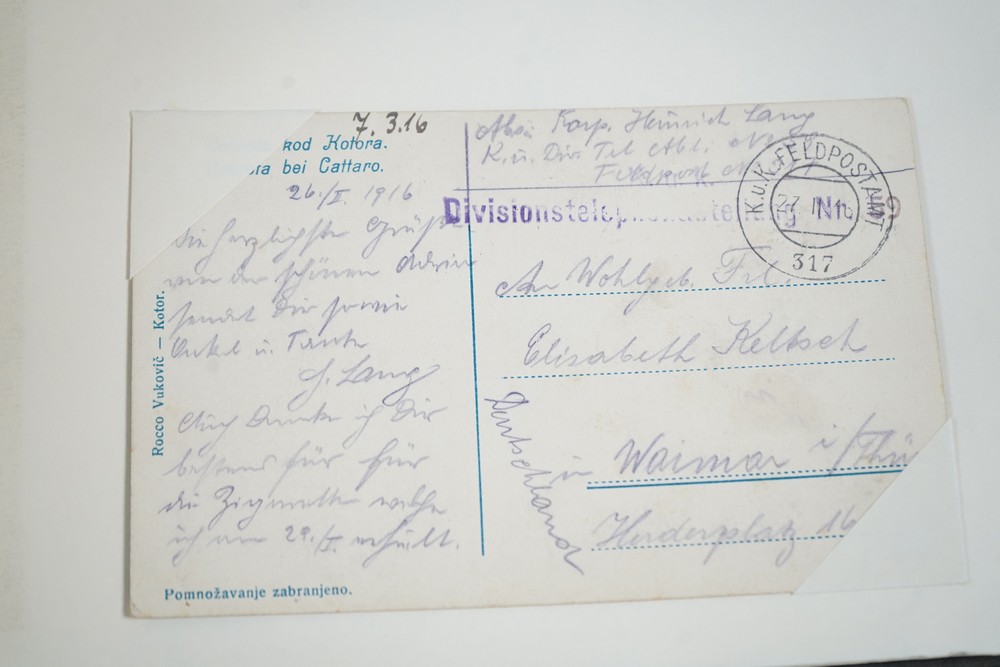 7. 3. 16
kod Kotora.
bei Cattaro.
26./II. 1916
Die herzlichste Grüße
von der schönen Adria
sendet Dir sowie
Onkel u. Tante
H. Lang
Auch Danke ich Dir
bestens für für
die Zigaretten welche
ich am 29./I. erhielt.
Rocco Vuković — Kotor.
Pomnožavanje zabranjeno.
Abs: Korp. Heinrich Lang
K. u. Div. Tel. Abt.
Feldpost
Divisionstelephonabteilung Nr.
K. u. K. FELDPOSTAMT
317
An Wohlgeb. Frl.
Elisabeth Keltsch
in Waimar i/Thü
Herderplatz 16
Deutschland